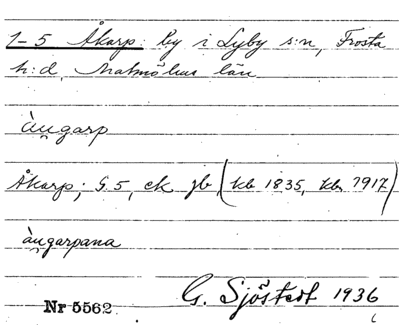 1-5 Åkarp: by i Lyby s:n, Frosta
h:d, Malmöhus län
àu̯garp
Åkarp; G.5, ek jb (kb 1835, kbr 1917)
àu̯garpana
G. Sjöstedt 1936
Nr 5562